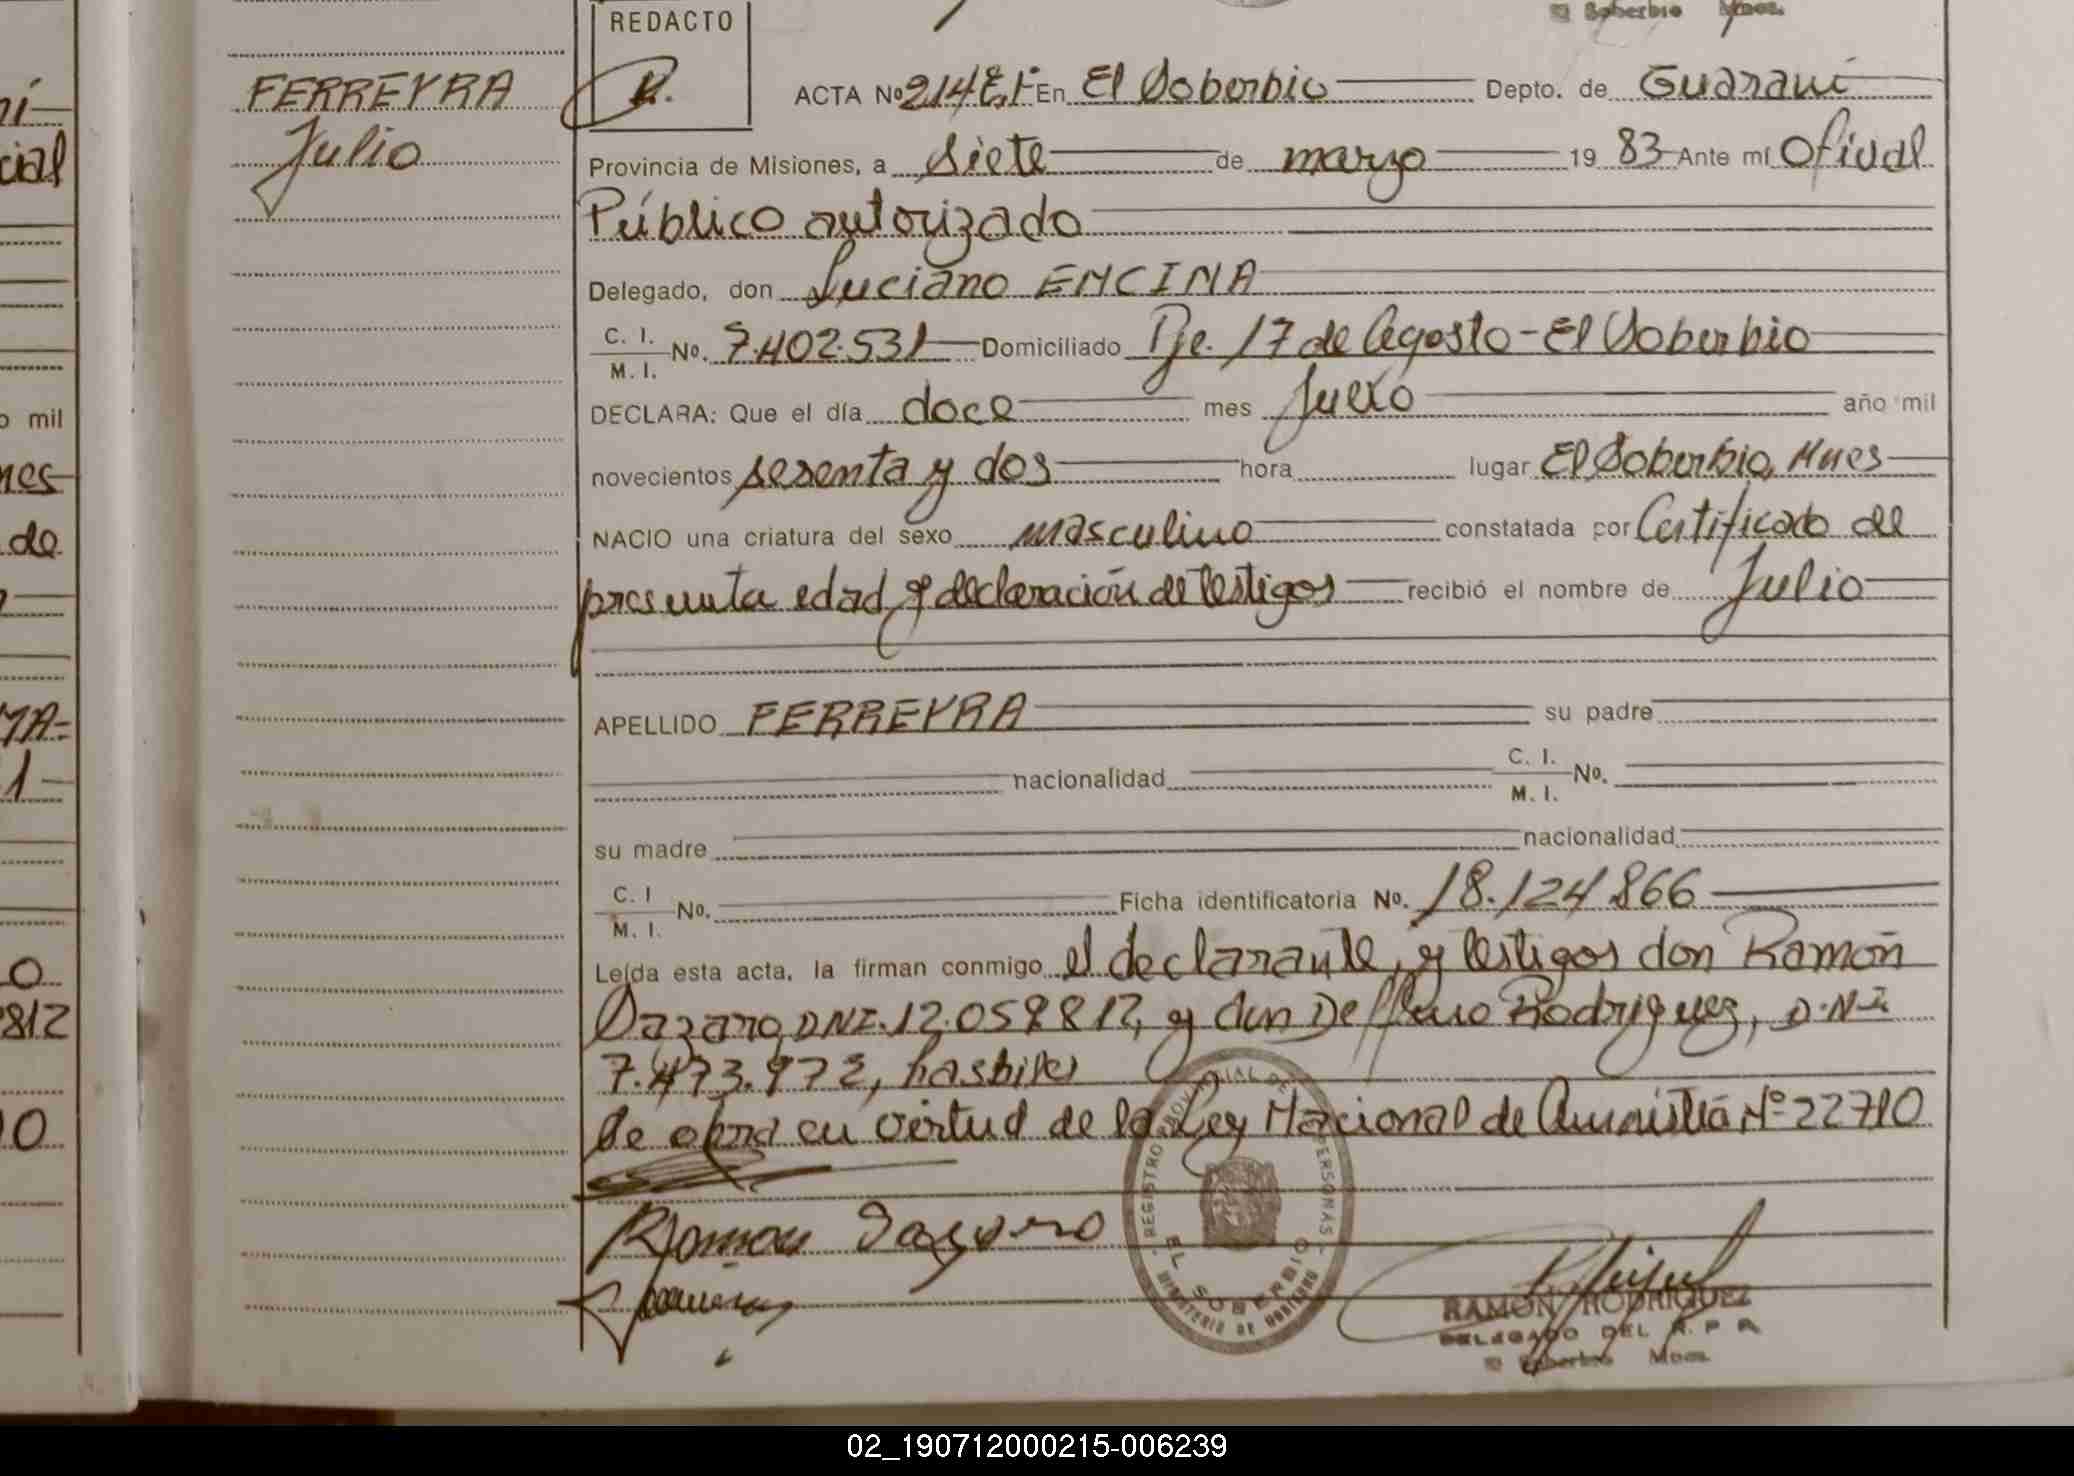 REDACTO
El Soberbio Mnes.
FERREYRA
Julio
ACTA Nº 214 E.F. En El Soberbio Depto. de Guaraní
Provincia de Misiones, a siete de marzo 19 83 Ante mí Oficial
Público autorizado
Delegado, don Luciano ENCINA
C. I. M. I. No. 7.402.531 Domiciliado Pje. 17 de Agosto - El Soberbio
DECLARA: Que el día doce mes Julio año mil
novecientos sesenta y dos hora lugar El Soberbio, Mnes
NACIO una criatura del sexo masculino constatada por Certificado de
presunta edad y declaración de testigos recibió el nombre de Julio
APELLIDO FERREYRA su padre
nacionalidad C. I. M. I. No.
su madre nacionalidad
C. I M. I. No. Ficha identificatoria No. 18.124.866
Leída esta acta, la firman conmigo el declarante, y testigos don Ramón
DNI. 12.058.812, y don Rodriguez, D.N.I
7.473.972,
Se obra en virtud de la Ley Nacional de Amnistía Nº 22710
Ramon
REGISTRO PROVINCIAL DE PERSONAS
EL SOBERBIO
MINISTERIO DE GOBIERNO
RAMON RODRIGUEZ
DELEGADO DEL R. P. P.
El Soberbio Mnes.
ní
cial
o mil
nes
de
MA=
1
0
812
0
02_190712000215-006239